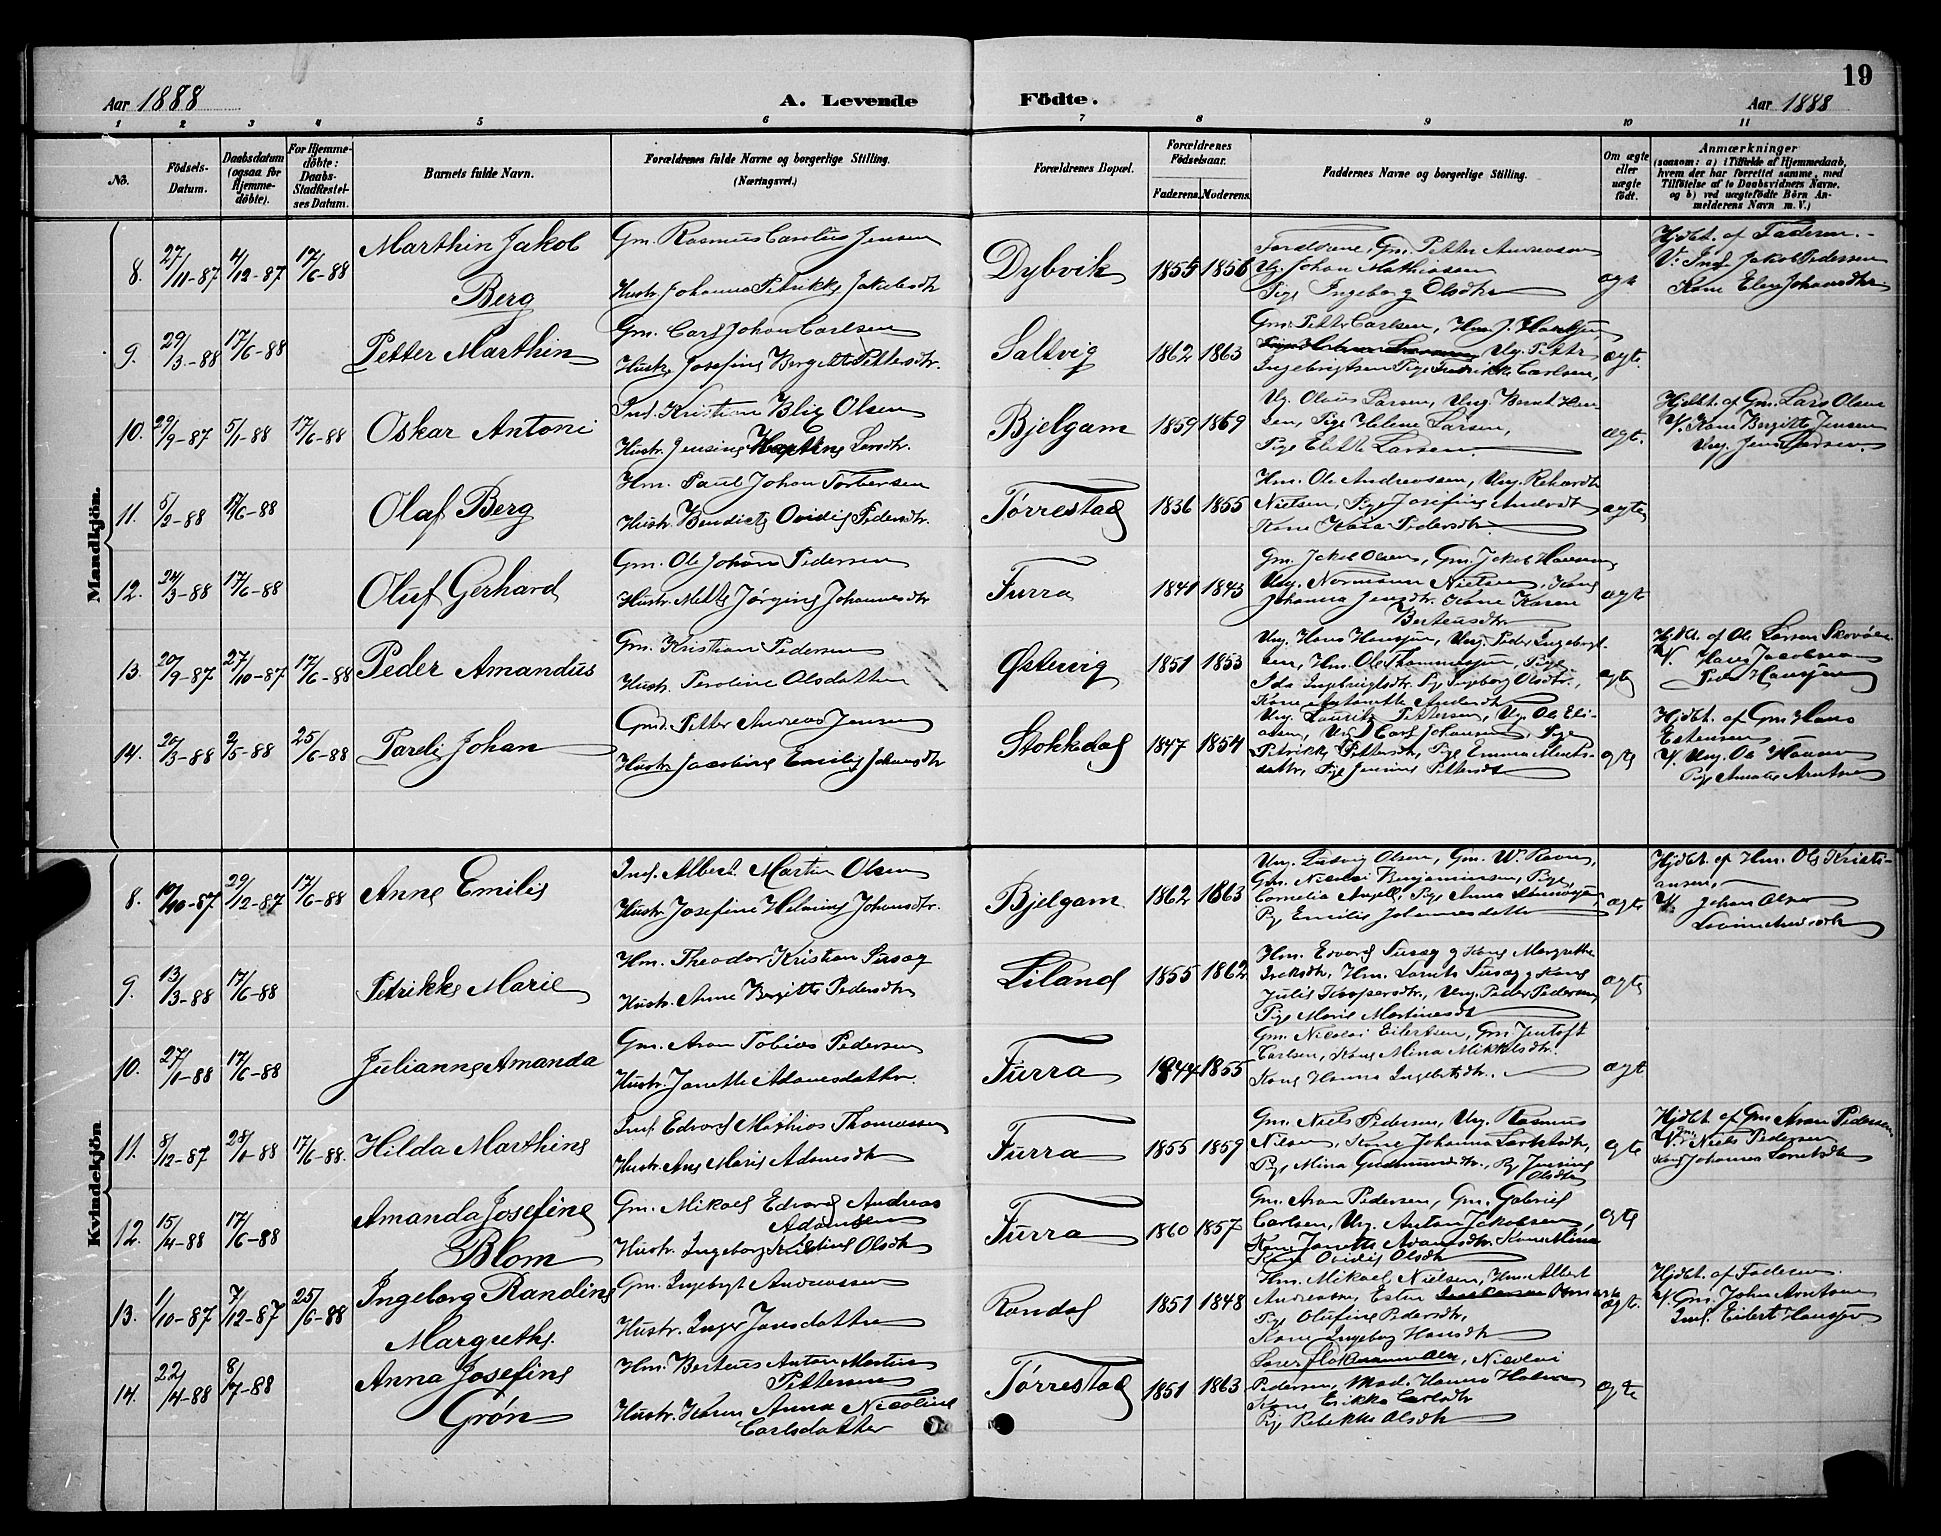 19
Aar 1888
A. Levende
Födte.
Aar 1888
1 2 3 4 5 6 7 8 9 10 11
No.
Födsels-
Datum.
Daabsdatum
(ogsaa for
Hjemme-
døbte).
For Hjemme-
döbte:
Daabs-
Stadfæstel-
ses Datum.
Barnets fulde Navn.
Forældrenes fulde Navne og borgerlige Stilling.
(Næringsvei.)
Forældrenes Bopæl.
Forældrenes
Födselsaar.
Faderens. Moderens.
Faddernes Navne og borgerlige Stilling.
Om ægte
eller
uægte
født.
Anmærkninger
(saasom: a) i Tilfælde af Hjemmedaab,
hvem der har forrettet samme, med
Tilföielse af to Daabsvidners Navne.
og b) ved uægtefödte Börn An-
melderens Navn m. V.)
Mandkjön.
8. 27/11-87 4/12-87 17/6-88
Marthin Jakob
Berg
Gm. Rasmus Carolus Jensen
Hustr. Johanna Petrikke Jakobsdtr
Dybvik
1855 1856
Forældrene, Gm. Petter Andreassen
Ug. Johan Mathiassen
Pige Ingeborg Olsdtr
ægte
Hjdbt. af Faderen.
V: Ind. Jakob Pedersen
Kone Elen Johansdtr
9. 29/3-88 17/6-88
Petter Marthin
Gm. Carl Johan Carlsen
Hustr. Josefine Bergitte Pettersdtr.
Saltvig
1862 1863
Gm. Petter Carlsen, Hm. J.
Ung. Petter
Ingebrigtsen Pige Fredrikke Carlsen,
ægte.
10. 29/9-87 5/1-88 17/6-88
Oskar Antoni
Ind. Kristian Blix Olsen
Hustr. Jensine Larsdtr.
Bjelgam
1859 1869
Ug. Olaus Larsen, Ung. Bernt Han
sen, Pige Helene Larsen,
Pige Elitte Larsen.
ægte.
Hjdbt. af Gm. Lars Olsen
V. Kone Bergitte Jensen
Ung. Jens Larsen.
11. 5/2-88 17/6-88
Olaf Berg
Hm. Paul Johan Torbersen
Hustr. Benedicte Ovidie Pedersdtr.
Tørrestad
1836 1855
Hm. Ole Andreassen, Ung. Rikardt
Nielsen, Pige Josefine Andersdtr
Kone Kaia Pedersdtr
ægte
12. 24/3-88 17/6-88
Oluf Gerhard
Gm. Ole Johan Pedersen
Hustr. Mette Jørgine Johannesdtr
Furra
1841 1843
Gm. Jakob Olsen, Gm. Jakob Hansen
Ung. Normann Nielsen, Kone
Johanna Jensdtr. Kone Karen
Berteusdtr
ægte
13. 20/9-87 27/10-87 17/6-88
Peder Amandus
Gm. Kristian Pedersen
Hustr. Peroline Olsdatter
Østervig
1851 1853
Ung. Hans Hansen, Ung. Peder Ingebrigt-
sen, Hm. Ole Thommesen, Pige
Ida Ingebrigtsdtr. Pige Ingeborg Olsdtr,
Kone Antonette Andersdtr
ægte
Hjdbt. af Ole Larsen
V. Hans Jacobsen
Peder Hansen
14. 20/3-88 2/5-88 25/6-88
Pareli Johan
Gmd. Petter Andreas Jensen
Hustr. Jacobine Emilie Johansdtr
Stokkdal
1847 1854
Ung. Lauritz Pettersen, Ug. Ole Eli-
asen, Ung. Carl Johansen, Pige
Petrikke Pettersdtr, Pige Emma
datter, Pige Jensine Pettersdtr
ægte
Hjdbt. af Gm. Hans
Estensen
V. Ung. Ole Hansen
Pige Amalie
Kvindekjön.
8. 19/10-87 29/12-87 17/6-88
Anne Emilie
Ind. Albert Martin Olsen
Hustr. Josefine Helmine Johansdtr.
Bjelgam
1862 1863
Ung. Ludvig Olsen, Gm. W. Ravn,
Gm. Nicolai Benjaminsen, Pige
Cornelia Angell, Pige Anna
Pige Emilie Johannesdatter
ægte
Hjdbt. af Hm. Ole Kristi-
ansen,
V. Johan Olsen
9. 13/3-88 17/6-88
Petrikke Marie
Hm. Theodor Kristian Susæg
Hustr. Anne Bergitte Pedersdtr
Liland
1855 1862
Hm. Edvard Susæg og Kone Margrethe
Iraksdtr, Hm. Susæg og Kone
Julie Kaspersdtr, Ung. Peder Pedersen
Pige Marie Martinesdtr
ægte
10. 27/1-88 17/6-88
Julianne Amanda
Gm. Aron Tobias Pedersen
Hustr. Janette Adamsdatter.
Furra
1844 1855
Gm. Nicolai Eilertsen, Gm. Jentoft
Carlsen, Kone Mina Mikkelsdtr.
Kone Hanna Ingebrtsdtr.
ægte
11. 8/12-87 28/1-88 17/6-88.
Hilda Marthine
Ind. Edvard Mathias Thomassen
Hustr. Ane Marie Adamsdtr
Furra
1855 1859
Gm. Niels Pedersen, Ung. Rasmus
Nilsen, Kone Johanna Larsdtr,
Pige Mina Gudmundsdtr., Pg. Jensine
Olsdtr
ægte
Hjdbt. af Gm. Aron Pedersen
V. Gm. Niels Pedersen
Kone Johanna Larsdtr
12. 15/4-88 17/6-88
Amanda Josefine
Blom
Gm. Mikael Edvard Andreas
Adamsen
Hustr. Ingeborg Kristine Olsdtr
Furra
1860 1857
Gm. Aron Pedersen, Gm. Gabriel
Carlsen, Ung. Anton Jakobsen,
Kone Janette Adamsdtr. Kone Mina
Kone Ovidie Olsdtr
ægte
13. 1/10-87 7/12-87 25/6-88
Ingeborg Randine
Margrethe.
Gm. Ingebrigt Andreassen
Hustr. Inger Jonsdatter
Randal
1851 1848
Hm. Mikael Nielsen, Hm. Albert
Andreassen, Esten
Pige Olufine Pedersdtr
Kone Ingeborg Hansdtr
ægte.
Hjdbt. af Faderen.
V. Gm. John Arntsen
Ind. Eilert Hansen
14. 22/4-88 8/7-88
Anna Josefine
Grøn
Hm. Berteus Anton Martin
Pettersen
Hustr. Karen Anna Nicoline
Carlsdatter
Tørrestad
1851 1863
Nicolai
Pedersen, Mad. Hanna Holm
Kone Erikka Carlsdtr
Pige Rebekka Olsdtr
ægte